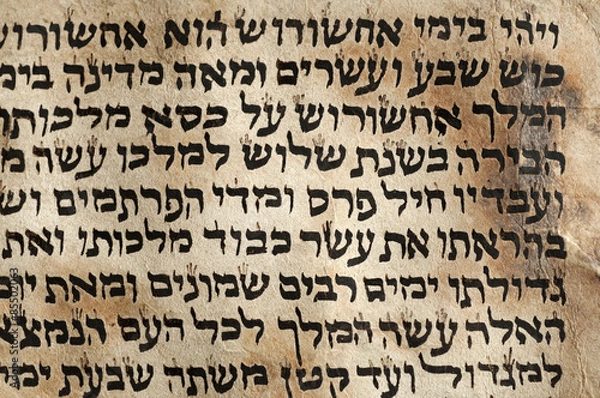 ויהי בימי אחשורוש הוא אחשורוש
כוש שבע ועשרים ומאה מדינה בימ
המלך אחשורוש על כסא מלכותו
הבירה בשנת שלוש למלכו עשה מ
ועבדיו חיל פרס ומדי הפרתמים וש
בהראתו את עשר כבוד מלכותו ואת
גדולתו ימים רבים שמונים ומאת י
האלה עשה המלך לכל העם הנמצא
למגדול ועד קטן משתה שבעת ימ
Adobe Stock